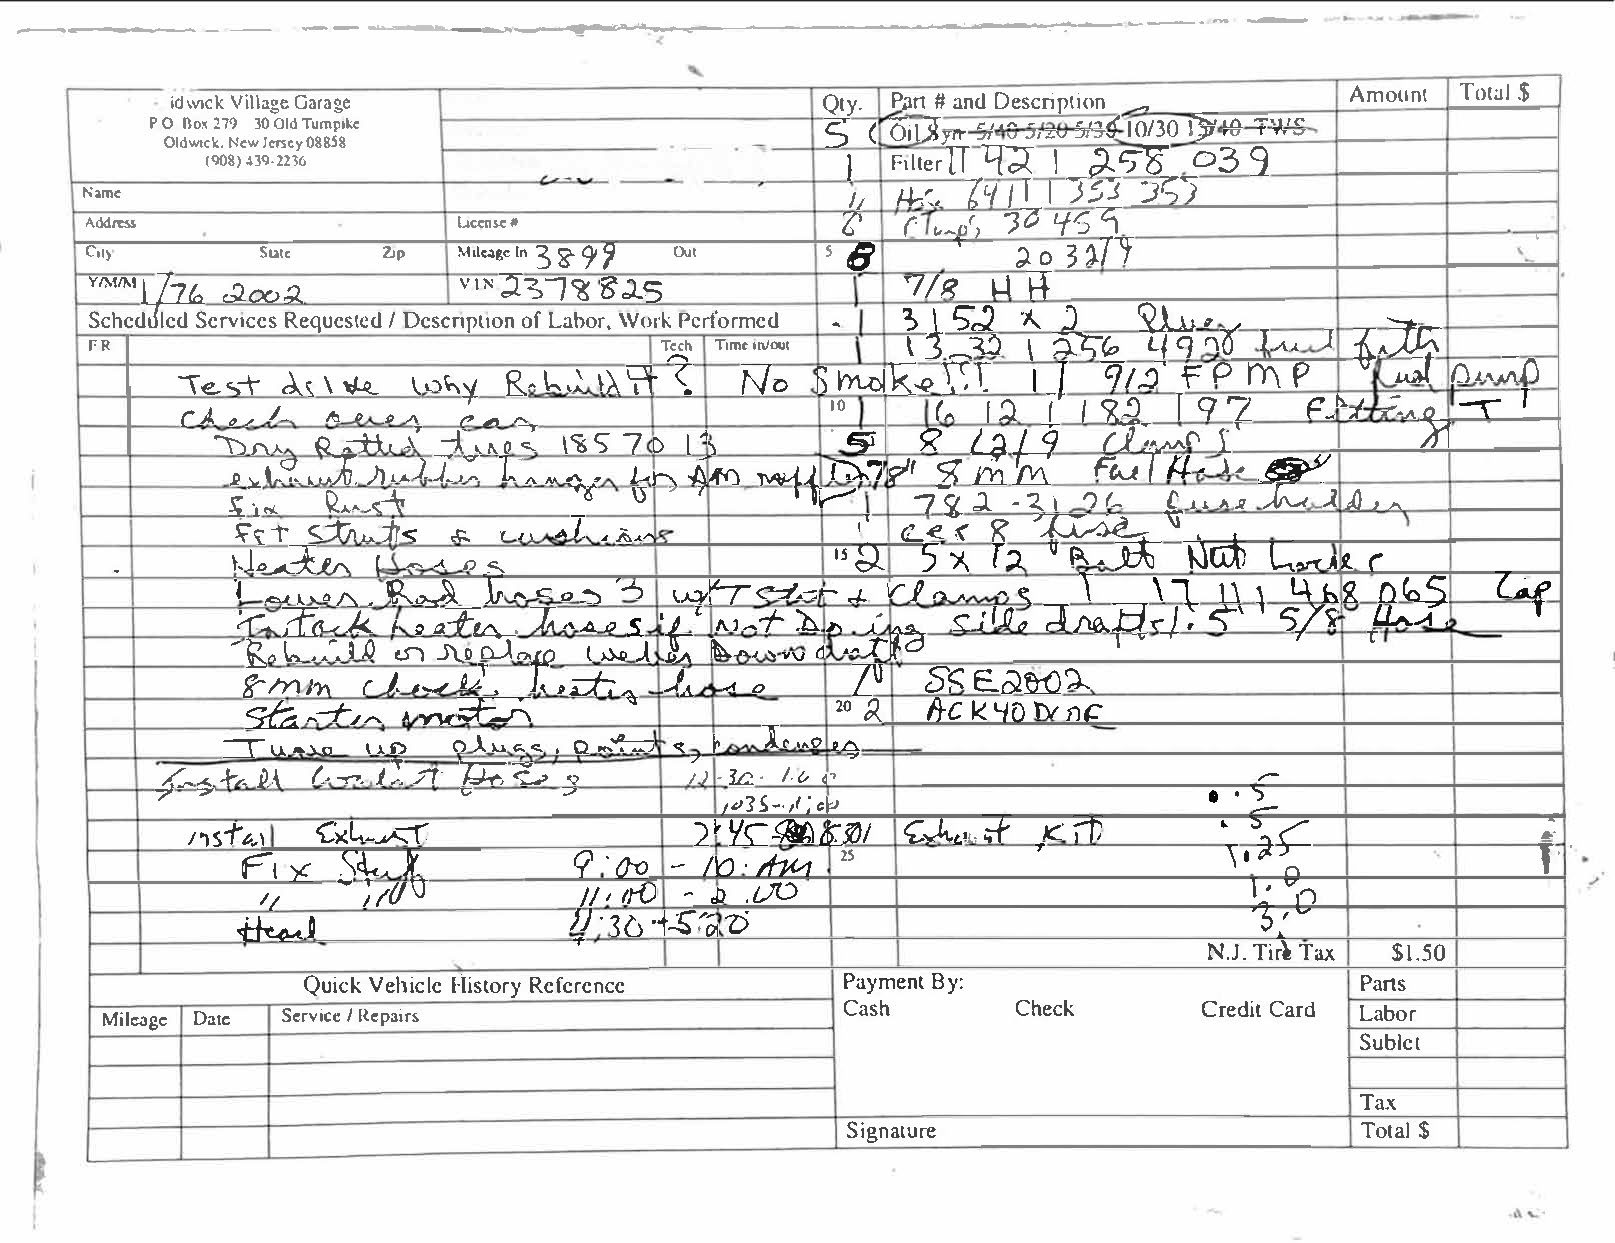 idwick Village Garage
P O Box 279 30 Old Turnpike
Oldwick, New Jersey 08858
(908) 439-2236
Name
Address
License #
City State Zip
Mileage In 3899 Out
Y/M/M 1/76 2002
VIN 2378825
Scheduled Services Requested / Description of Labor, Work Performed
FR Tech Time in/out
Test drive why Rebuild it? No Smoke!!!
Check over car
Dry Rotted tires 185 70 13
exhaust rubber hanger for AM
Fix Rust
Frt Struts & cushions
Heater Hoses
Lower Rad hoses 3 w/TStat & Clamps
heater hoses if Not Doing side drafts
Rebuild or replace weber Downdraft
8mm check heater hose
Starter motor
Tune up plugs, points, condenser
Install Hoses 12-30-
1035-
install Exhaust 2:45
Fix Stuff 9:00 - 10: AM
" " 11:00 - 2:00
Head 4:30 + 5:20
Qty. Part # and Description Amount Total $
5 Oil Syn 5/40 5/20 5/30 10/30 15/40 TWS
1 Filter 11 421 258 039
64111 353 353
30459
5 8 203219
1 7/8 HH
1 3152 x 2 Plugs
1 13 32 1 256 492 fuel
1 912 FPMP fuel pump
10 1 16 12 1 182 197 Fitting T
5 81219 Clamps
78" 8mm Fuel Hose
1 782-3126 fuse holder
8 fuse
15 2 5 x 12 Bolt Nut
1 17 111 468 065 Cap
1.5 5/8 Hose
SSE2002
20 2
.5
.5
Exhaust Kit
25
1.25
1.0
3.0
N.J. Tire Tax $1.50
Quick Vehicle History Reference
Mileage Date Service / Repairs
Payment By:
Cash Check Credit Card
Signature
Parts
Labor
Sublet
Tax
Total $